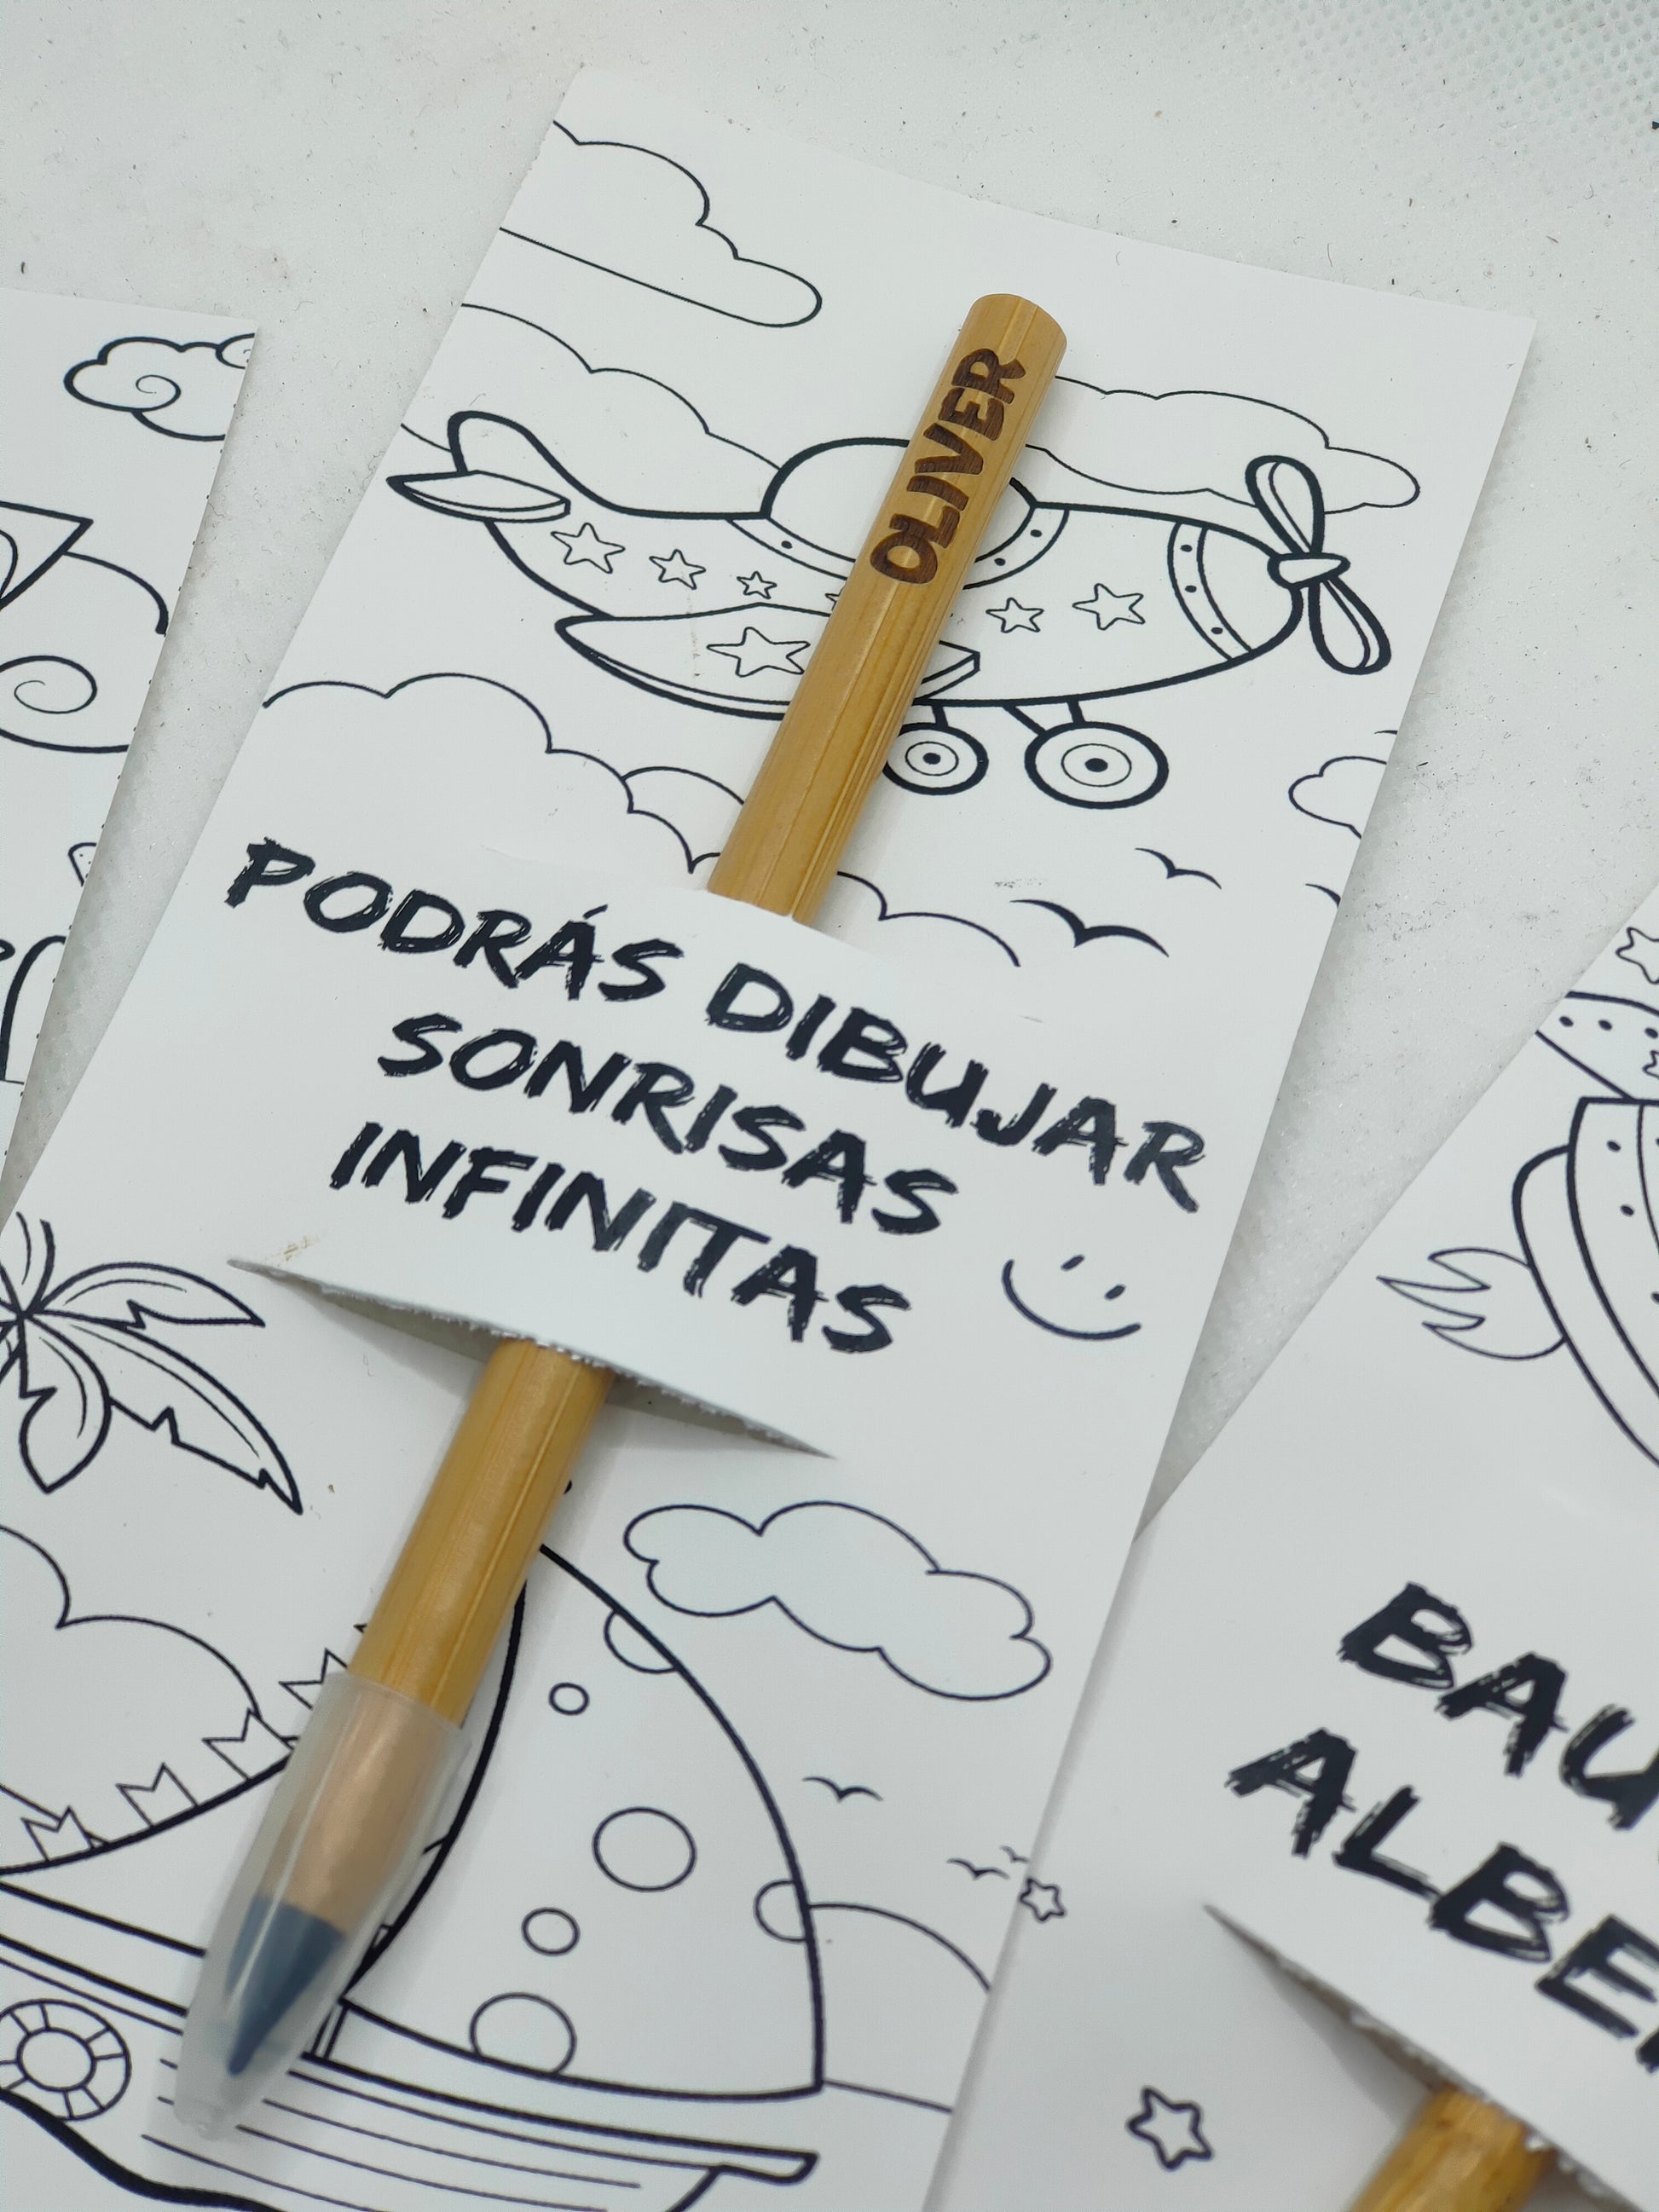 OLIVER
PODRÁS DIBUJAR
SONRISAS
INFINITAS